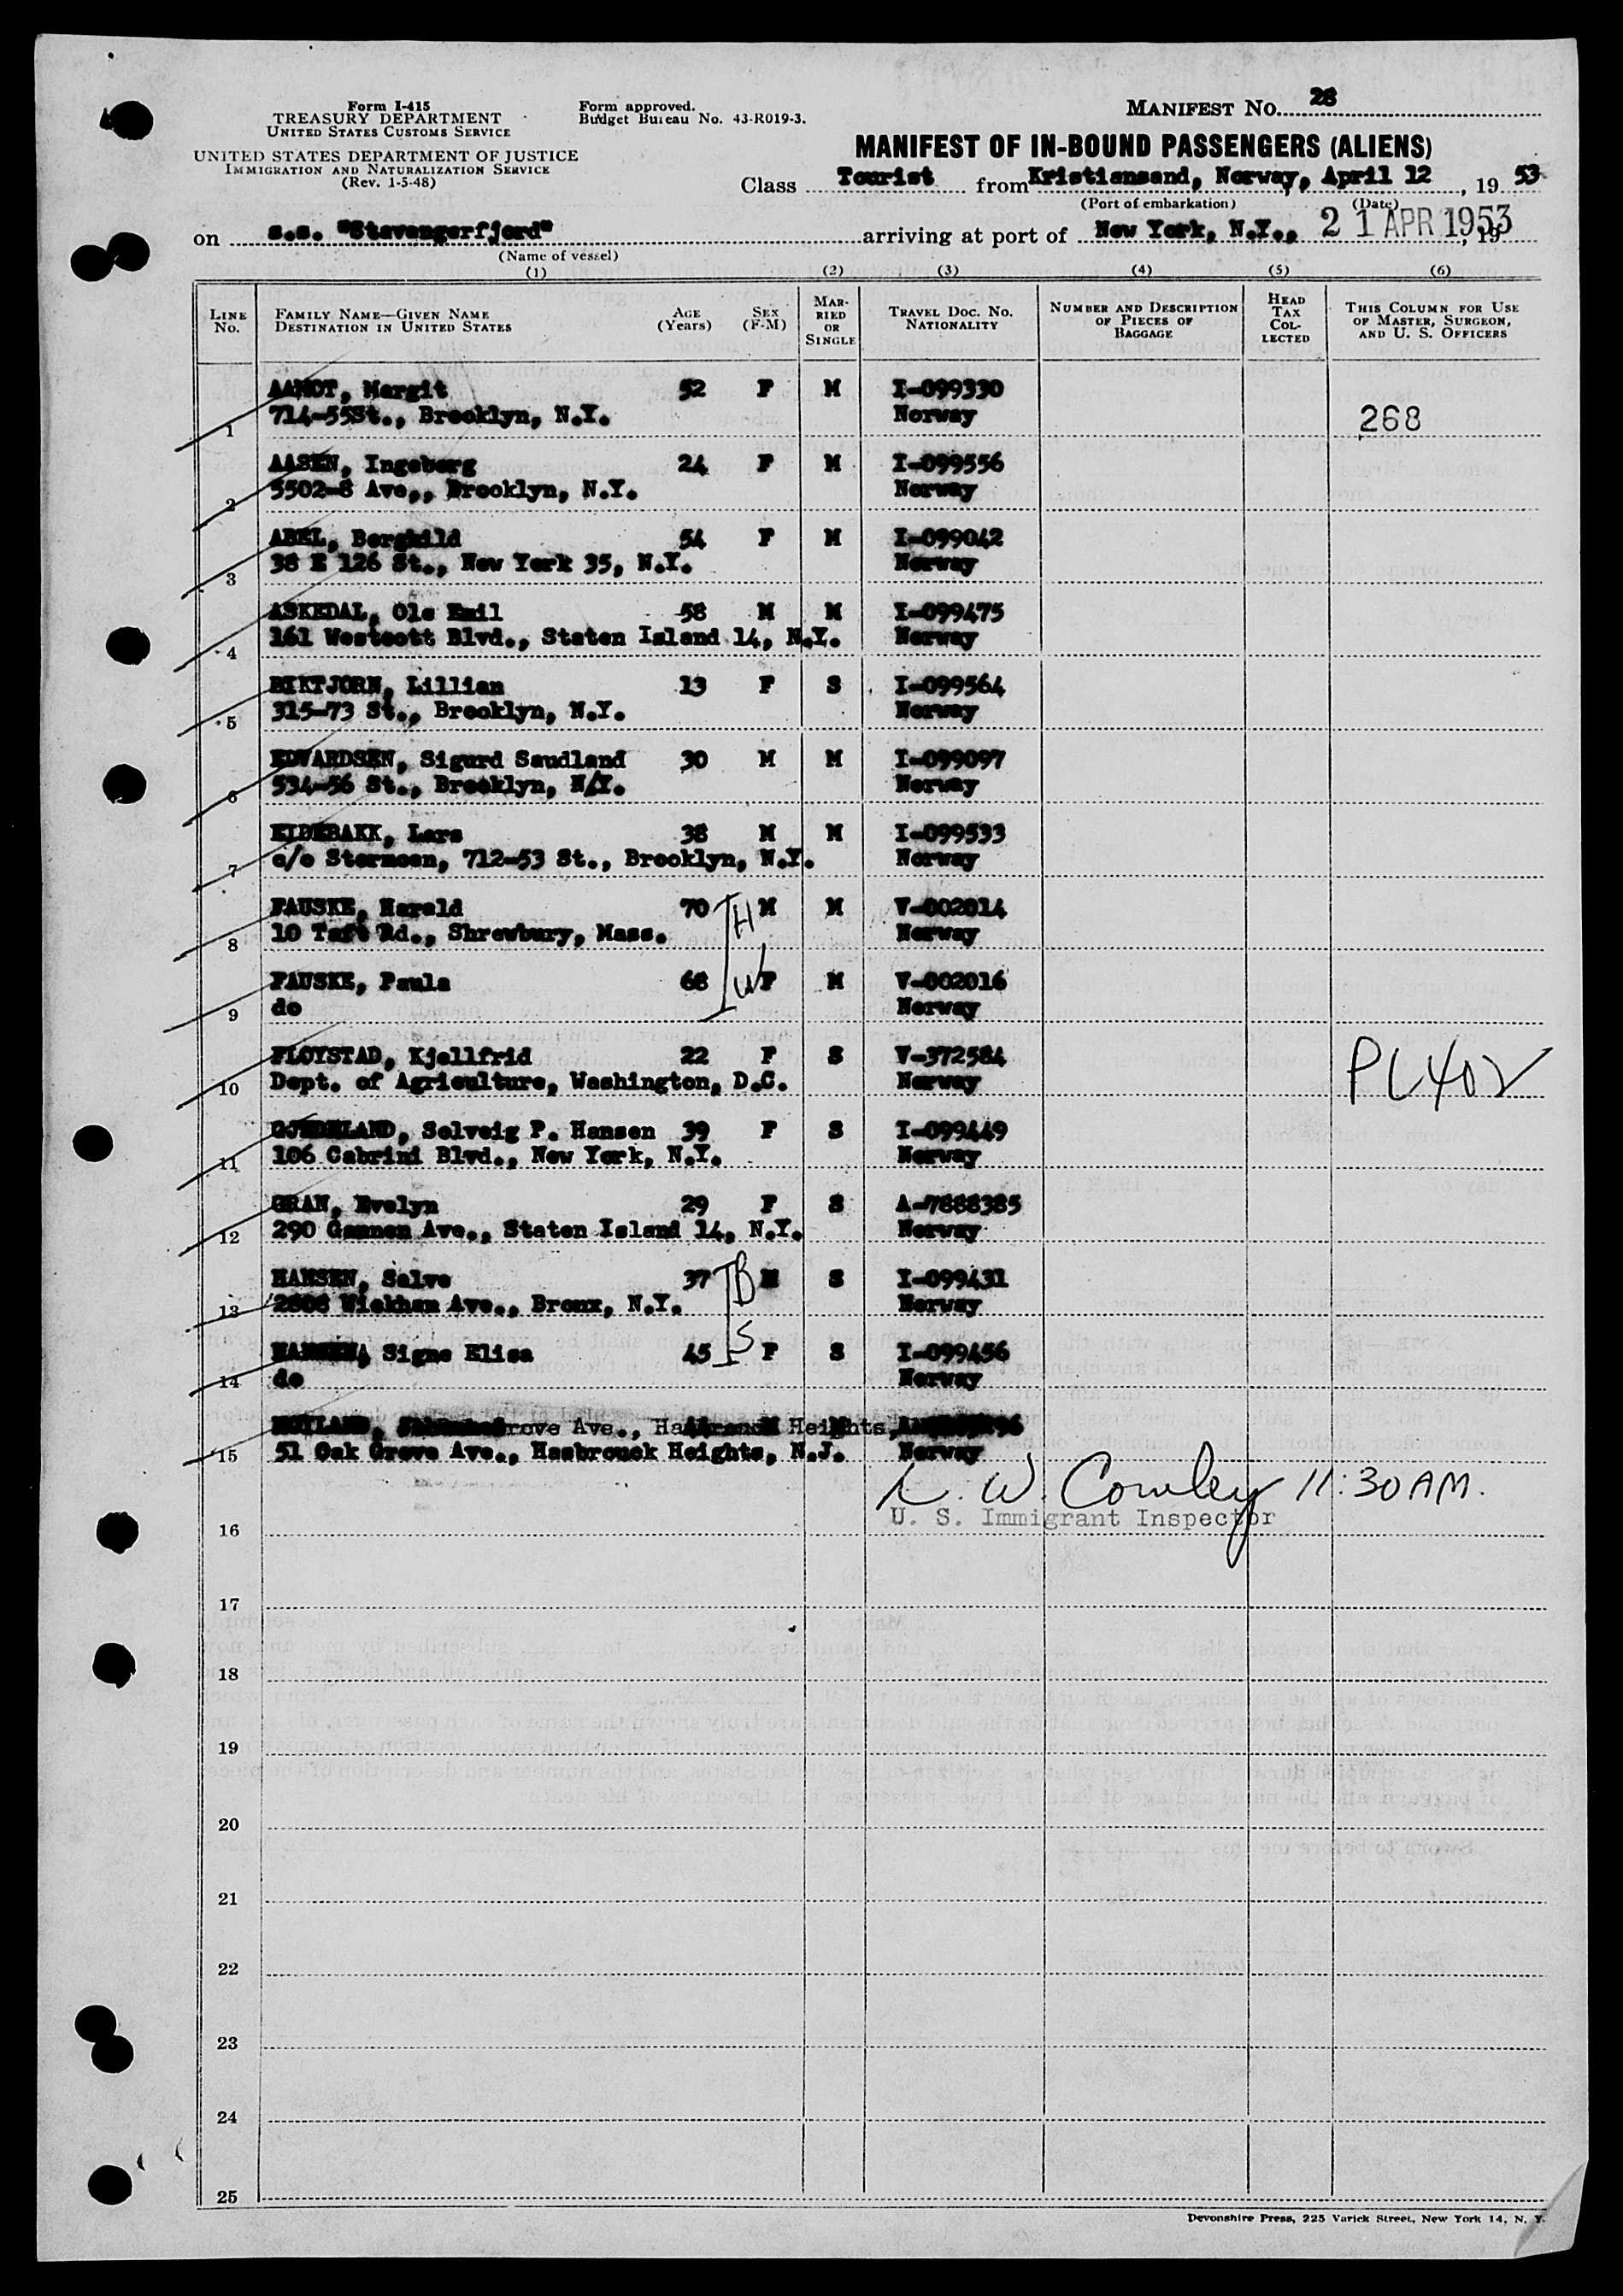 Form I-415
TREASURY DEPARTMENT
UNITED STATES CUSTOMS SERVICE
UNITED STATES DEPARTMENT OF JUSTICE
IMMIGRATION AND NATURALIZATION SERVICE
(Rev. 1-5-48)
Form approved.
Budget Bureau No. 43-R019-3.
MANIFEST NO. 28
MANIFEST OF IN-BOUND PASSENGERS (ALIENS)
Class Tourist from Kristiansand, Norway, April 12, 19 53
(Port of embarkation) (Date)
on s.s. "Stavangerfjord" arriving at port of New York, N.Y., 21 APR 1953, 19
(Name of vessel)
(1) (2) (3) (4) (5) (6)
LINE NO. FAMILY NAME—GIVEN NAME DESTINATION IN UNITED STATES AGE (Years) SEX (F-M) MARRIED OR SINGLE TRAVEL DOC. NO. NATIONALITY NUMBER AND DESCRIPTION OF PIECES OF BAGGAGE HEAD TAX COLLECTED THIS COLUMN FOR USE OF MASTER, SURGEON, AND U. S. OFFICERS
AAMOT, Margit 52 F M I-099330
1 714-55St., Brooklyn, N.Y. Norway 268
AASEN, Ingeborg 24 F M I-099556
2 5502-8 Ave., Brooklyn, N.Y. Norway
ABEL, Borghild 54 F M I-099042
3 38 E 126 St., New York 35, N.Y. Norway
ASKEDAL, Ole Emil 58 M M I-099475
4 161 Westcott Blvd., Staten Island 14, N.Y. Norway
BIKTJORN, Lillian 13 F S I-099564
5 315-73 St., Brooklyn, N.Y. Norway
EDVARDSEN, Sigurd Saudland 30 M M I-099097
6 534-56 St., Brooklyn, N.Y. Norway
EIDEBAKK, Lars 38 M M I-099533
7 c/o Stormoen, 712-53 St., Brooklyn, N.Y. Norway
FAUSKE, Harald 70 H M M V-002014
8 10 Taft Rd., Shrewbury, Mass. Norway
FAUSKE, Paula 68 W F M V-002016
9 do Norway
FLOYSTAD, Kjellfrid 22 F S V-372584
10 Dept. of Agriculture, Washington, D.C. Norway PL402
GJEDELAND, Solveig P. Hansen 39 F S I-099449
11 106 Cabrini Blvd., New York, N.Y. Norway
GRAN, Evelyn 29 F S A-7888385
12 290 Gannon Ave., Staten Island 14, N.Y. Norway
HANSEN, Salve 37 B M S I-099431
13 Wickham Ave., Bronx, N.Y. Norway
HANSEN, Signe Elisa 45 S F S I-099456
14 do Norway
rove Ave., Heights,
15 51 Oak Grove Ave., Hasbrouck Heights, N.J. Norway
L. W. Conley 11:30 AM.
U. S. Immigrant Inspector
16
17
18
19
20
21
22
23
24
25
Devonshire Press, 225 Varick Street, New York 14, N. Y.